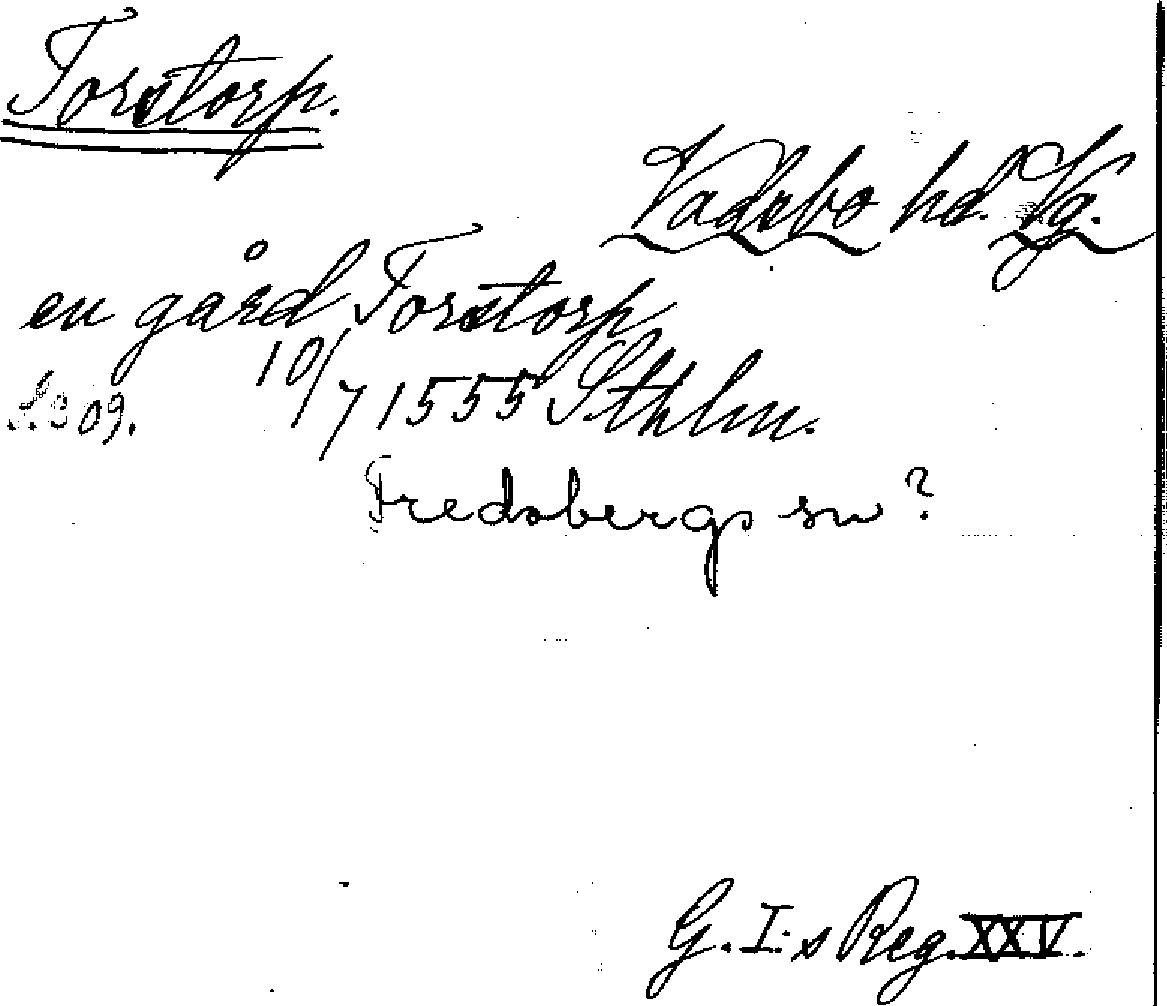 Torstorp.
Vadsbo hd. Vg.
en gård Torstorp
10/7 1555 Sthlm.
S. 309.
Fredsbergs sn?
G. I:s Reg. XXV.